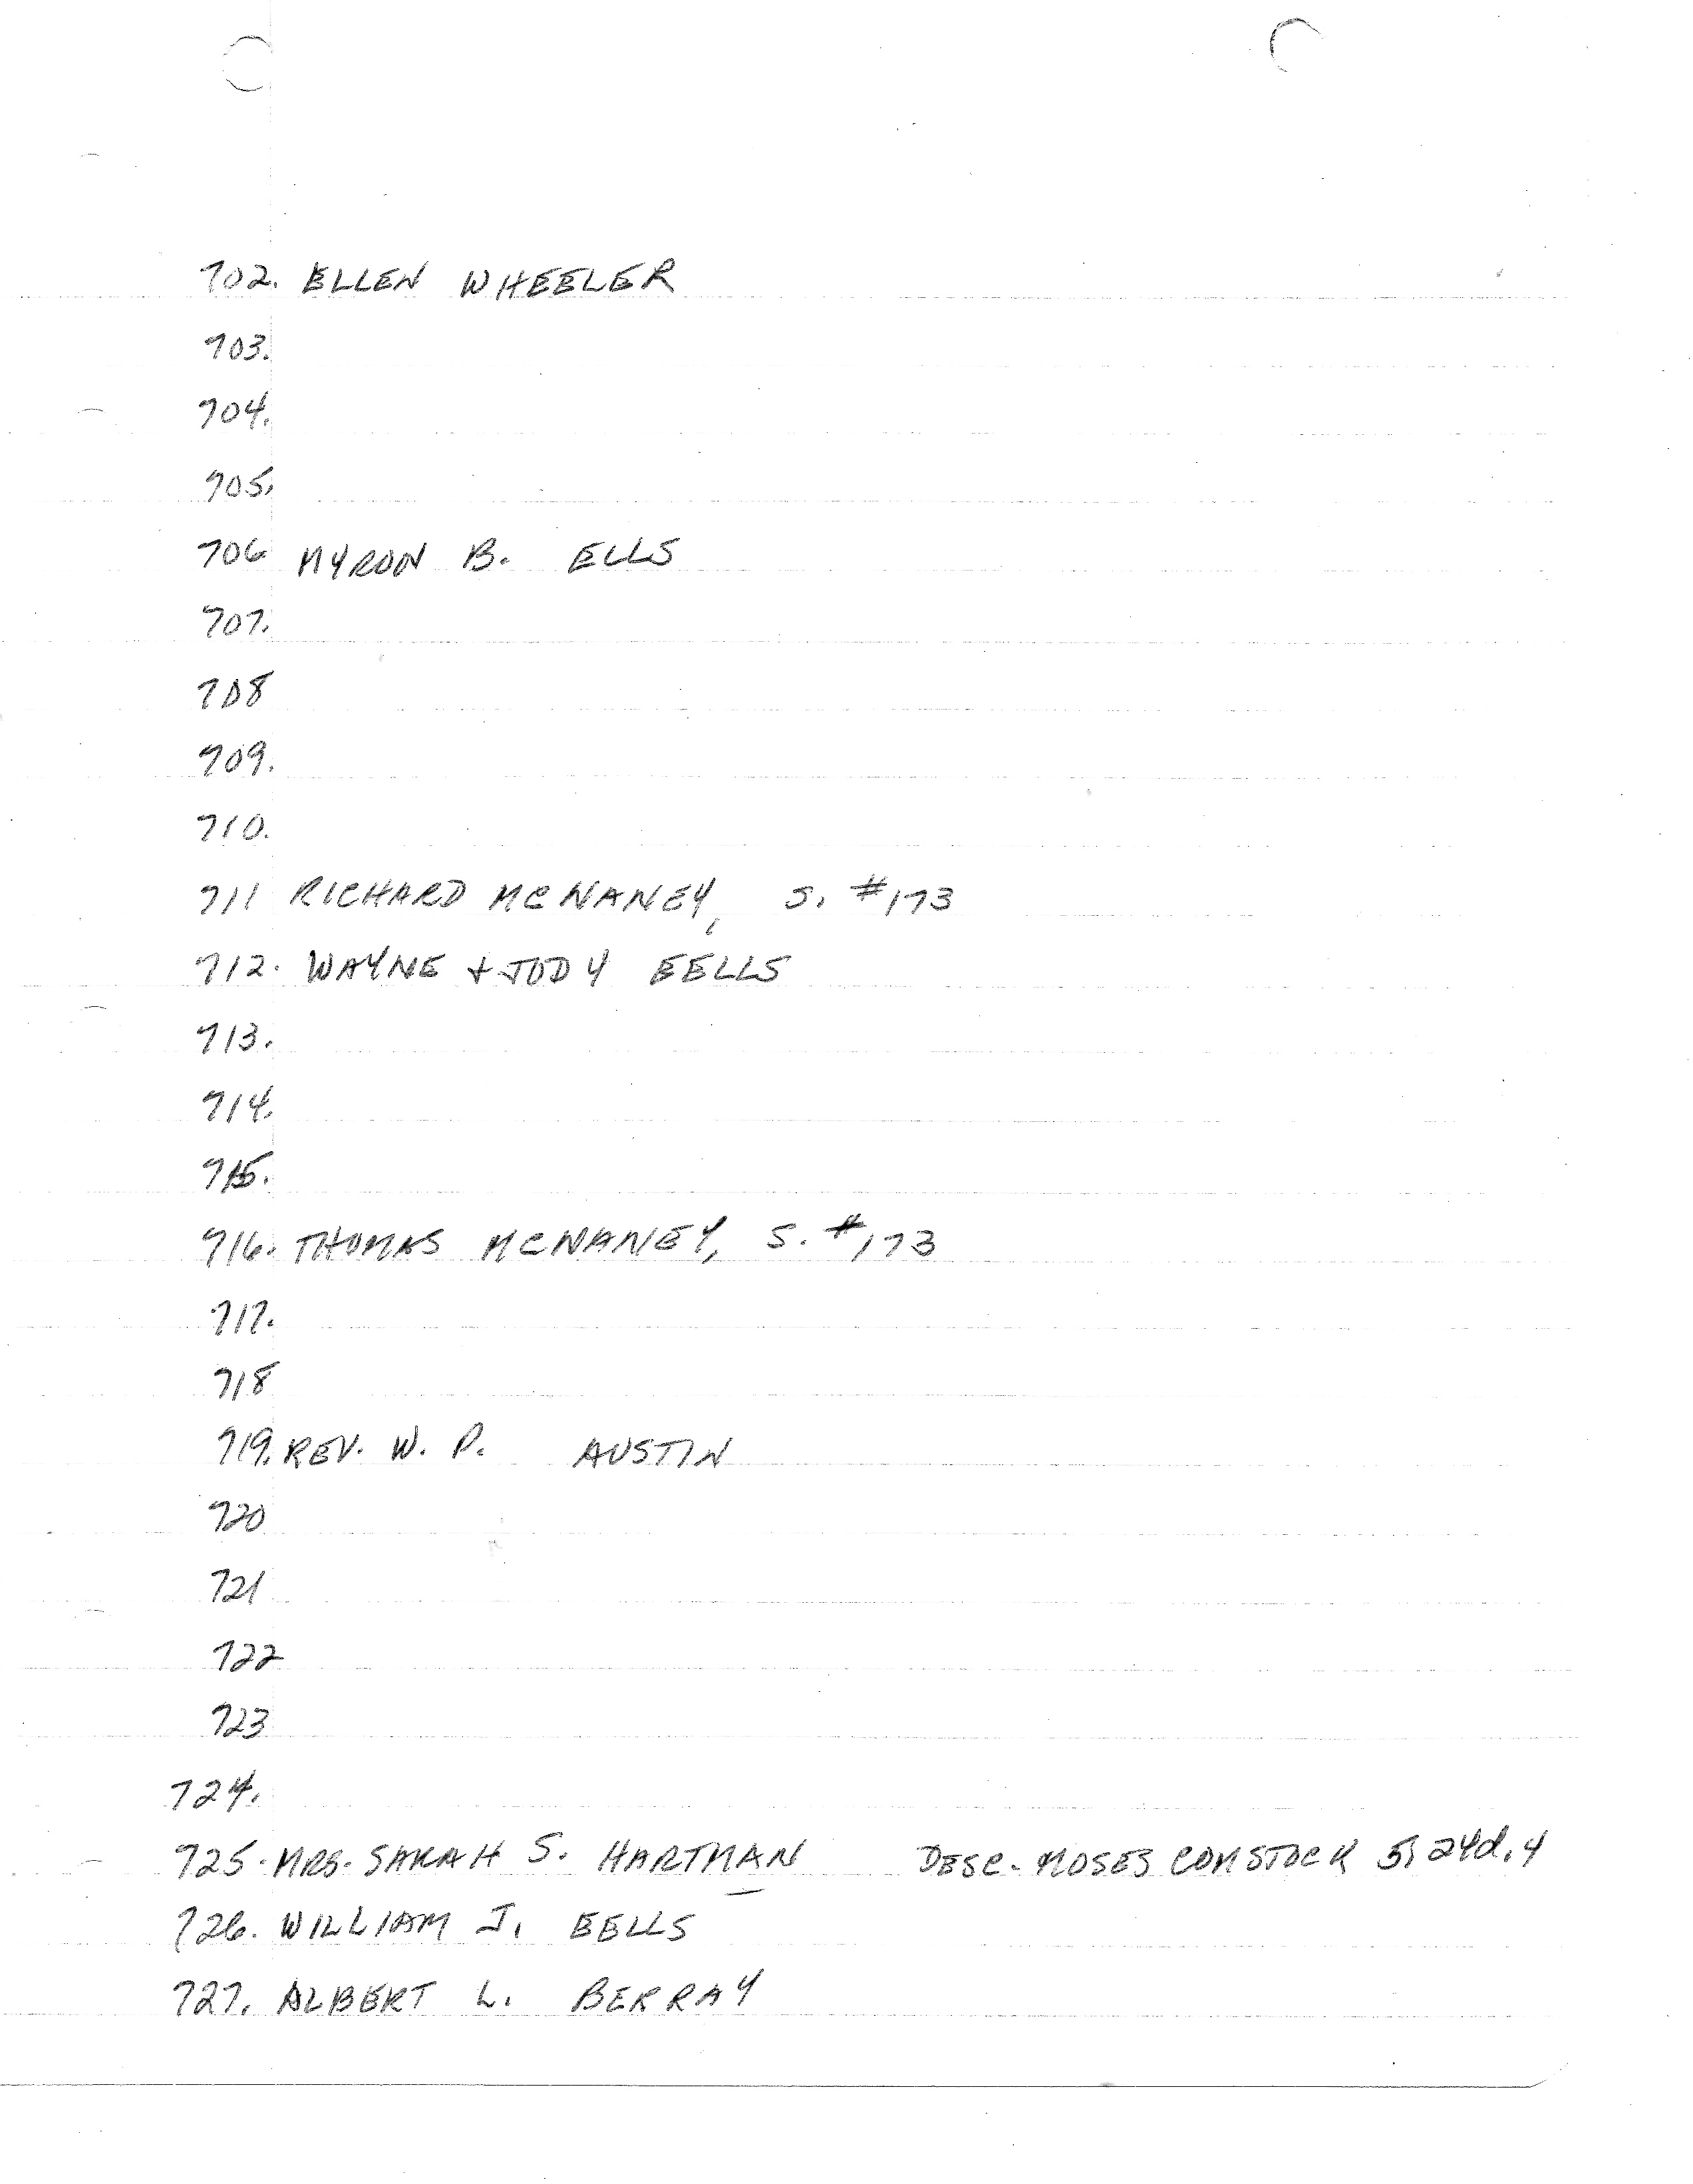 702. ELLEN WHEELER
703.
704.
705.
706 MYRON B. ELLS
707.
708
709.
710.
711 RICHARD MCNANEY, S. #173
712. WAYNE + JODY EELLS
713.
714.
715.
716. THOMAS MCNANEY, S. #173
717.
718
719. REV. W. P. AUSTIN
720
721
722
723
724.
725. MRS. SARAH S. HARTMAN DESC. MOSES COMSTOCK 5, 24d, 4
726. WILLIAM J. EELLS
727. ALBERT L. BERRAY